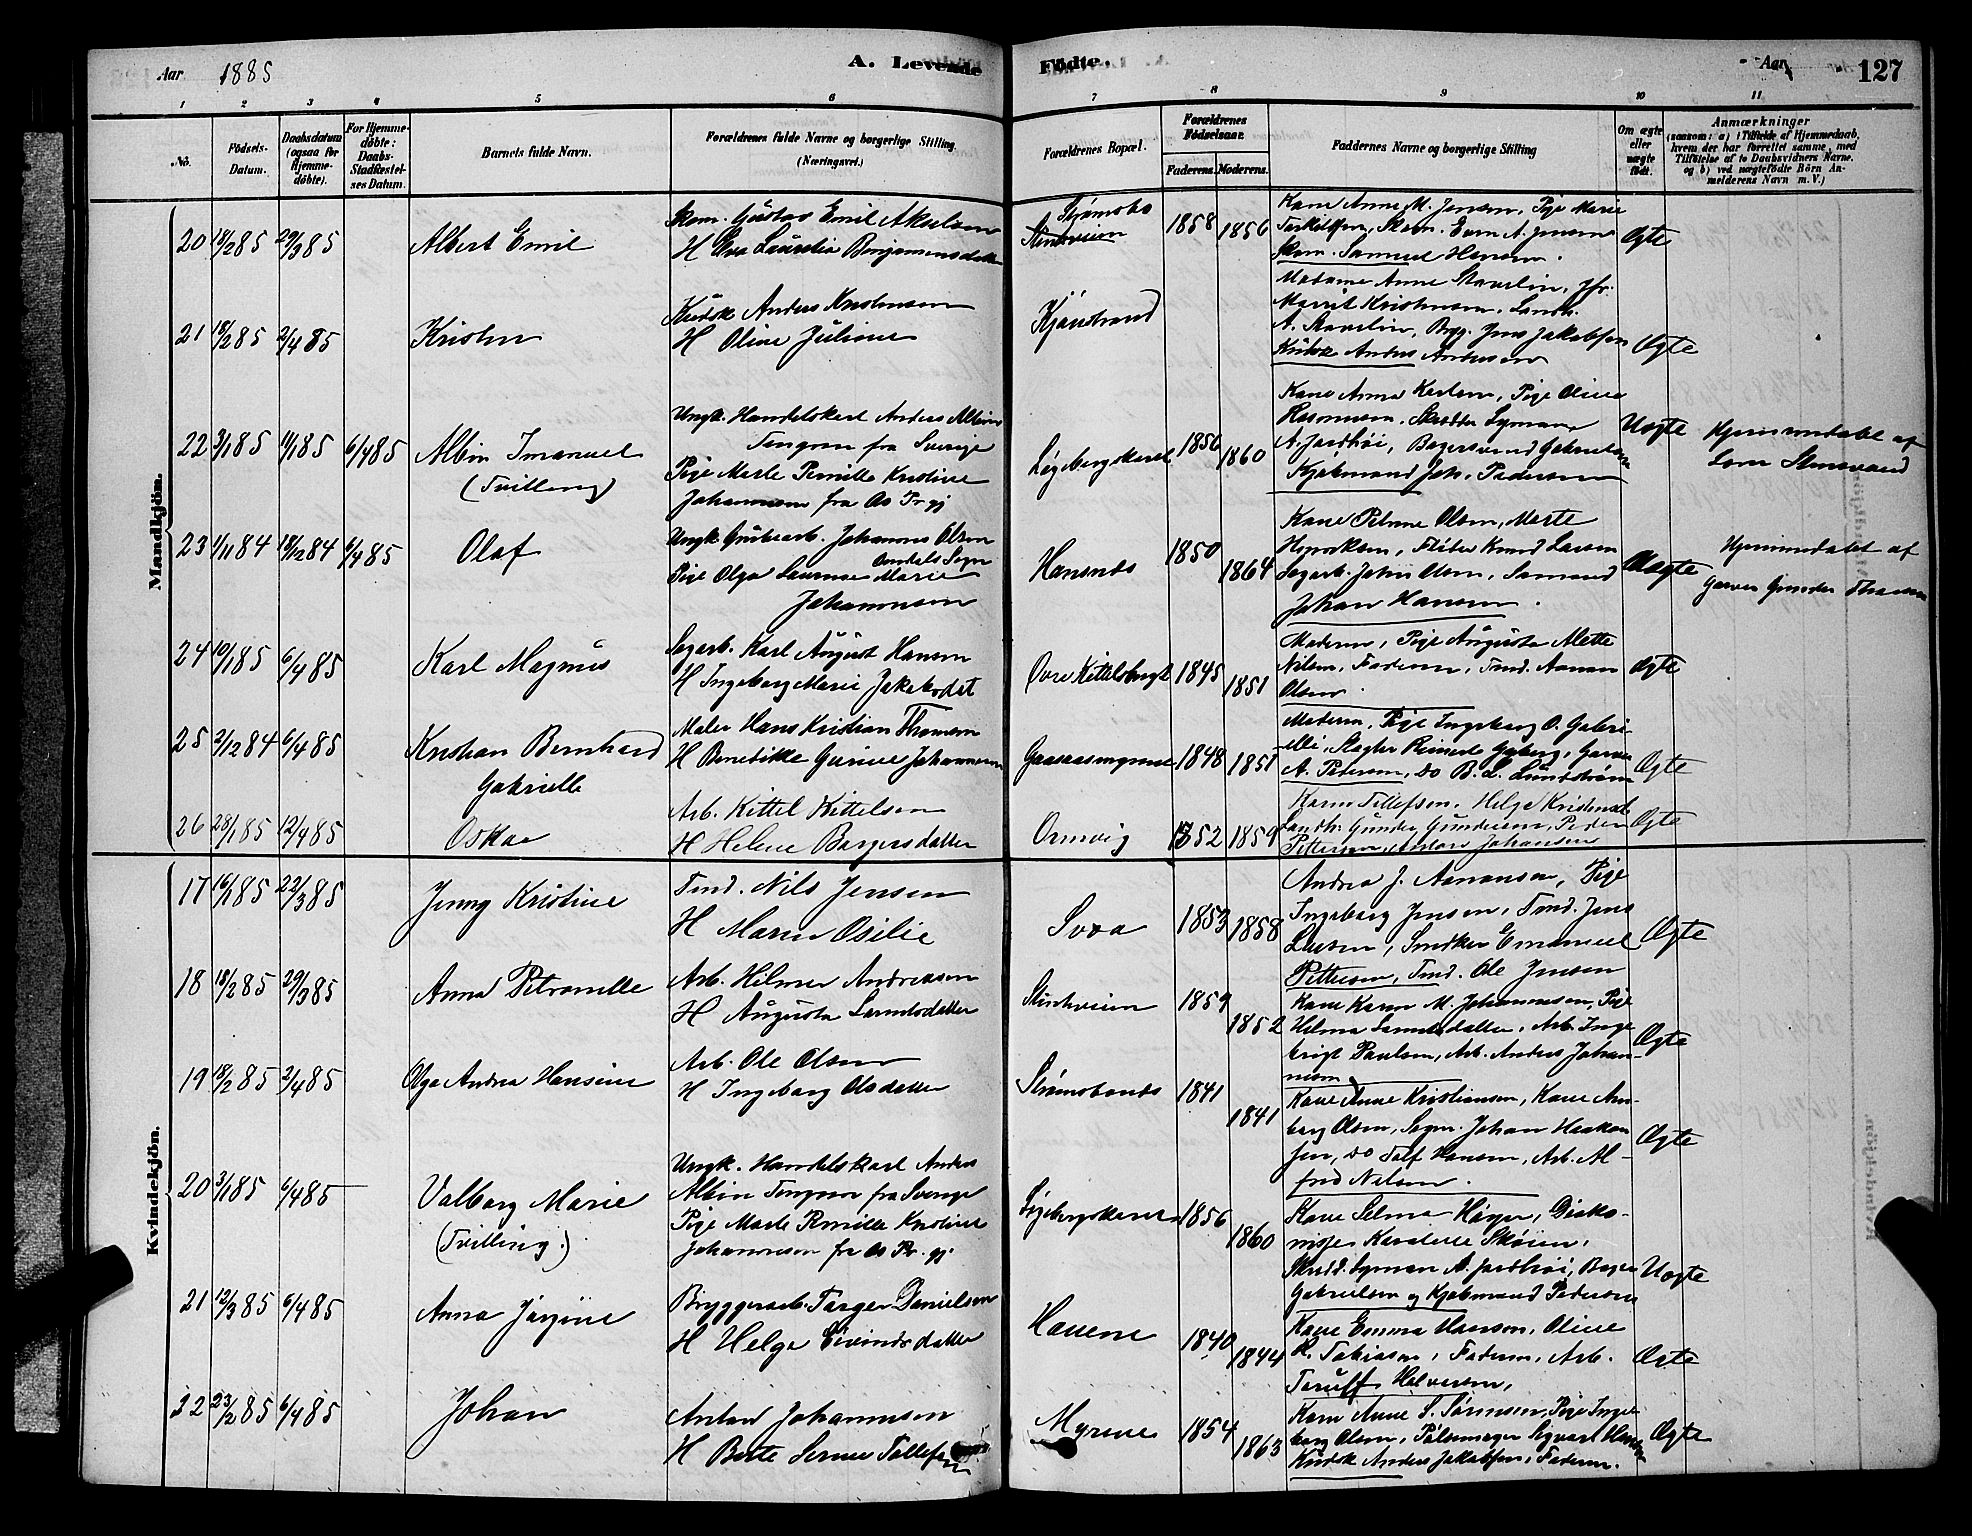 Aar 1885 A. Levende Fødte. Aar 127
1 2 3 4 5 6 7 8 9 10 11
No.
Födsels-Datum.
Daabsdatum (ogsaa for Hjemmedöbte).
For Hjemmedöbte: Daabs-Stadfæstelses Datum.
Barnets fulde Navn.
Forældrenes fulde Navne og borgerlige Stilling (Næringsvei.)
Forældrenes Bopæl.
Forældrenes Födselsaar.
Faderens. Moderens.
Faddernes Navne og borgerlige Stilling
Om ægte eller uægte födt.
Anmærkninger
(saasom: a) i Tilfælde af Hjemmedaab, hvem der har forrettet samme, med Tilföielse af to Daabsvidners Navne. og b) ved uægtefödte Börn Anmelderens Navn m. V.)
Mandkjön.
20 18/2 85 29/3 85 Albert Emil
Skom. Gustav Emil Akselsen
H Eva Lauritia Benjaminsdatter
Strømsbo 1858 1856
Kone Anne M. Jensen, Pige Marie
Terkildsen, Skom. Even A. Jensen
Skom. Samuel Hansen.
Ægte
21 18/2 85 2/4 85 Kristen
Kudsk Anders Kristensen
H Oline Juliane
Madame Anne Stavelin, Jfr.
Marrit Kristensen, Landh.
A. Stavelin, Brygg. Jens Jakobsen
Kudsk Anders Andersen
Ægte
22 3/1 85 11/1 85 6/4 85 Albin Imanuel
(Tvilling)
Ungk. Handelskarl Anders Albin
Tengren fra Sverige
Pige Marte Pernille Kristine
Johannesen fra Os Prgj
1856 1860
Kone Anna Karlsen, Pige Oline
Rasmussen, Skrædder Syman
Kjøbmand Joh. Pedersen
Uægte
Hjemmedøbt af
23 1/11 84 18/12 84 6/4 85 Olaf
Ungk. Grubearb. Johannes Olsen
Pige Olga Laurense Marie
Johannesen
1850 1864
Sagarb. John Olsen, Sømand
Johan Hansen.
Uægte
Hjemmedøbt af
Garver Gunder
24 10/1 85 6/4 85 Karl Magnus
Sagarb. Karl August Hansen
H Ingeborg Marie Jakobsdat
Øvre Kittelsbugt 1845 1851
Moderen, Pige Augusta Alette
Nilsen, Faderen, Tmd. Aanon
Olsen.
Ægte
25 2/12 84 6/4 85 Kristian Bernhard
Gabrielle
Maler Hans Kristian Thomsen
H Benedikte Gurine Johannesen
1848 1851
Moderen, Pige Ingeborg O. Gabri-
A. Pedersen, do B. L. Lundstrøm
Ægte
26 28/1 85 12/4 85 Oskar
Arb. Kittel Kittelsen
H Helene Børgersdatter
Ormvig 1852 1859
Karen Tellefsen, Helge Kristensd.
Landh. Gunder Gundersen, Peder
Pettersen, Johansen
Ægte
Kvindekjön.
17 16/1 85 22/3 85 Jenny Kristine
Tmd. Nils Jensen
H Maren Osilie
1853 1858
Andrea J. Aanonsen, Pige
Ingeborg Jensen, Tmd. Jens
Larsen, Snedker Emanuel
Pettersen, Tmd. Ole Jensen
Ægte
18 18/2 85 29/3 85 Anna Petronelle
Arb. Hilmer Andreassen
H Augusta
1859 1852
Kone Karen M. Johannessen, Pige
Hilma, Arb. Inge-
brigt Paulsen, Arb. Anders Johan-
nesen
Ægte
19 18/2 85 2/4 85 Olga Andrea Hansine
Arb. Ole Olsen
H Ingeborg Olsdatter
1841 1841
Kone Anne Kristiansen, Kone Am-
borg Olsen, Sagm. Johan Haakon
sen, do Tolf Hansen, Arb. Al-
fred Nilsen.
Ægte
20 3/1 85 6/4 85 Valborg Marie
(Tvilling.)
Ungk. Handelskarl Anders
Albin Tengren fra Sverige
Pige Marte Pernille Kristine
Johannesen fra Os Pr. gj.
1856 1860
Kone Selma Høyer, Diako-
nisse
Gabrielsen og Kjøbmand Pedersen
Uægte
21 12/3 85 6/4 85 Anna Jørgine
Bryggerarb. Targer Danielsen
H Helge Eivindsdatter
Havene 1840 1844
Kone Emma Hanson, Oline
R. Tobiasen, Faderen, Arb.
Halvorsen,
Ægte
22 23/2 85 6/4 85 Johan
Anton Johannesen
H Berte Serine Tollefsen
Myrene 1854 1863
Kone Anne S. Sørensen, Pige Inge-
borg Olsen, Pølsemager Sigvart Hansen
Kudsk Anders Jakobsen, Faderen.
Ægte